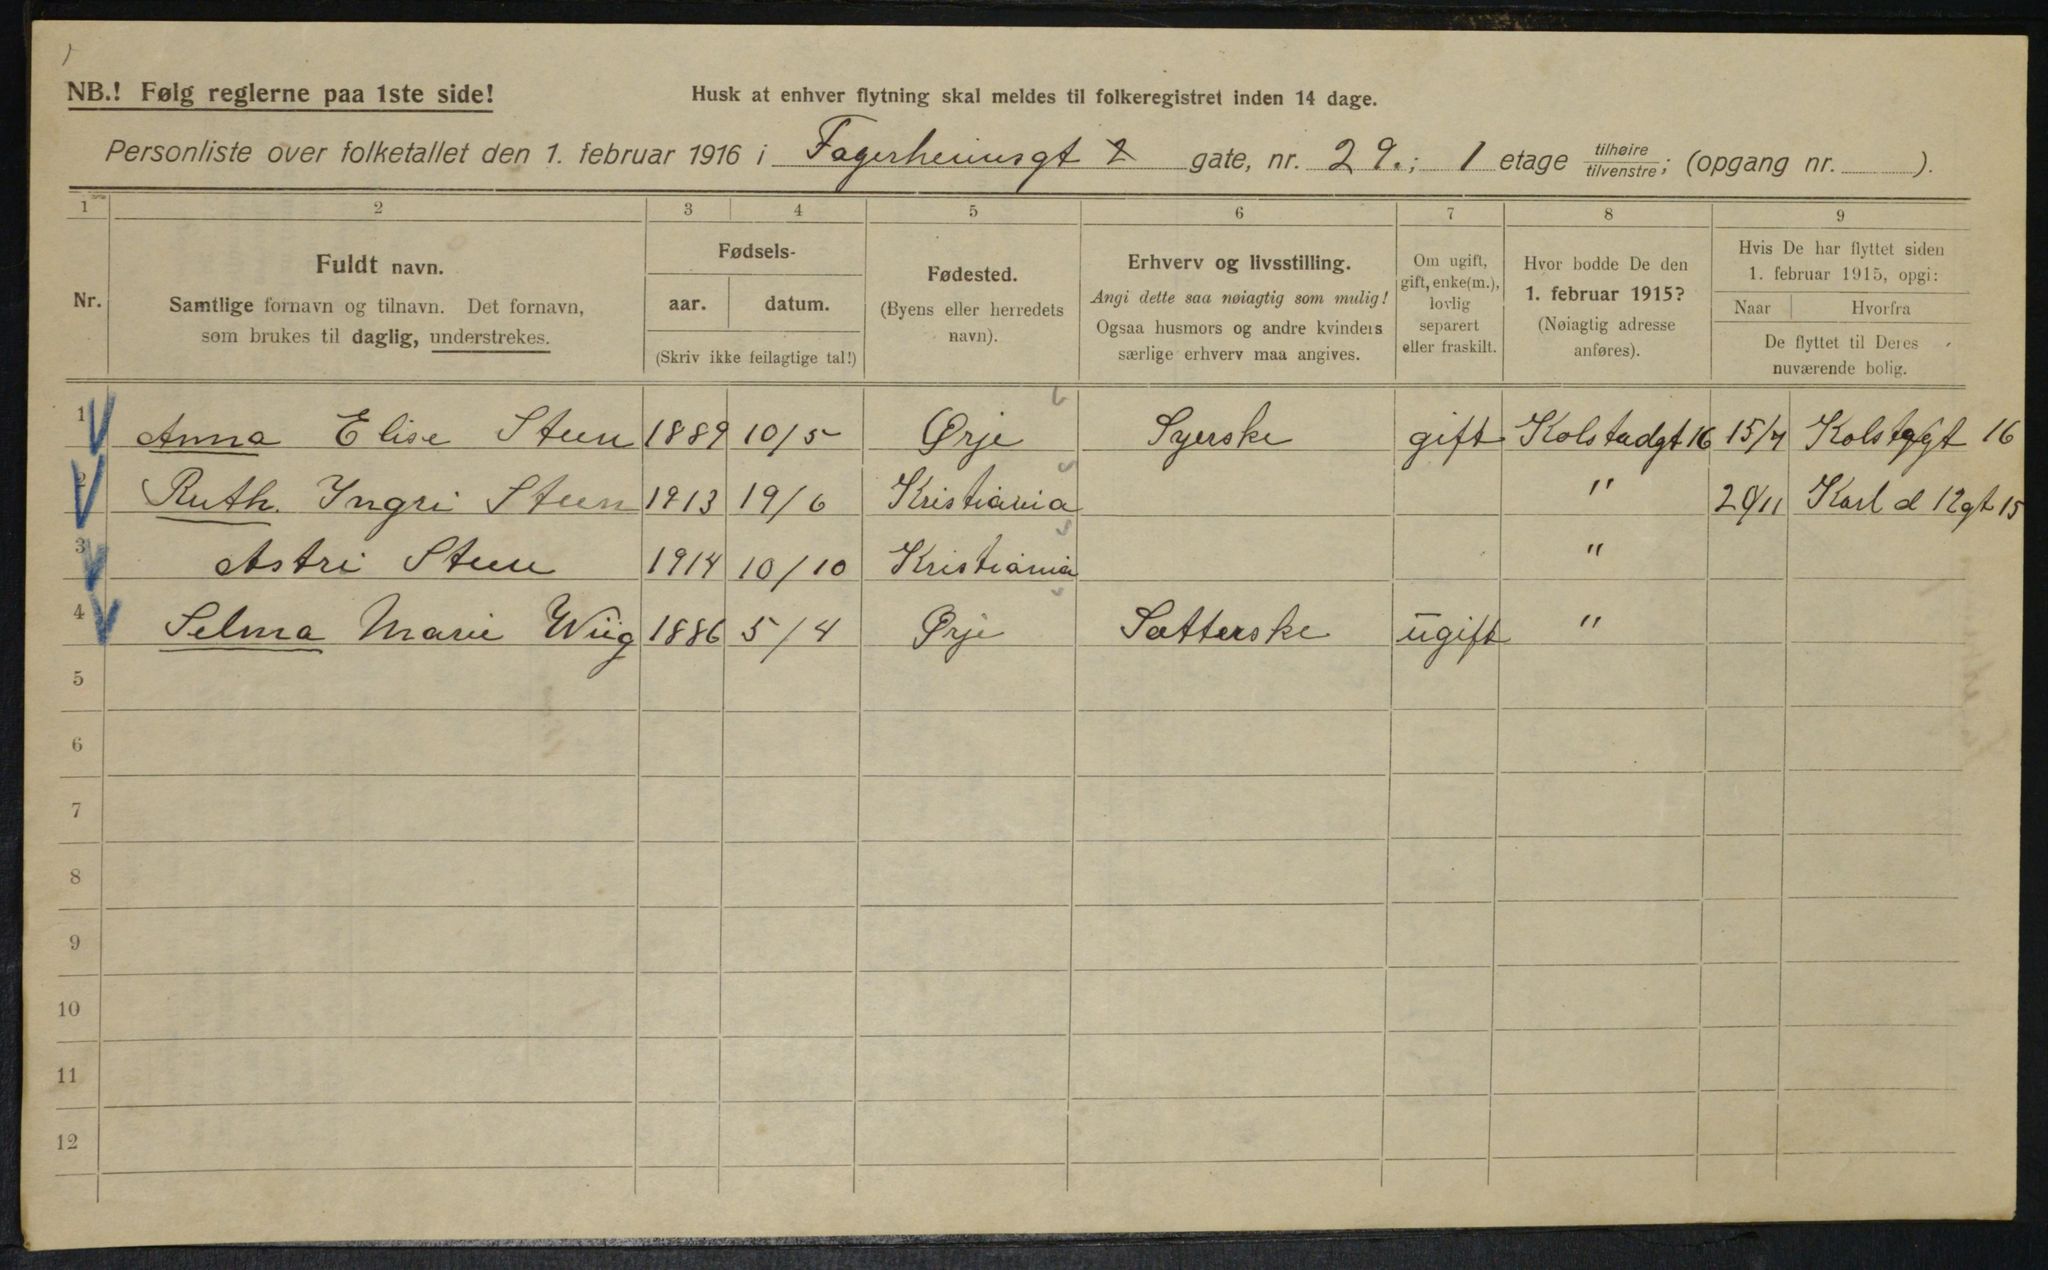 NB.! Følg reglerne paa 1ste side! Husk at enhver flytning skal meldes til folkeregistret inden 14 dage.
Personliste over folketallet den 1. februar 1916 i Fagerheimsgt gate, nr. 29.; 1 etage tilhøire/tilvenstre; (opgang nr. ).
1 2 3 4 5 6 7 8 9
Nr.
Fuldt navn.
Samtlige fornavn og tilnavn. Det fornavn,
som brukes til daglig, understrekes.
Fødsels-
aar. datum.
(Skriv ikke feilagtige tal!)
Fødested.
(Byens eller herredets
navn).
Erhverv og livsstilling.
Angi dette saa nøiagtig som mulig!
Ogsaa husmors og andre kvinders
særlige erhverv maa angives.
Om ugift,
gift, enke(m.),
lovlig
separert
eller fraskilt.
Hvor bodde De den
1. februar 1915?
(Nøiagtig adresse
anføres).
Hvis De har flyttet siden
1. februar 1915, opgi:
Naar Hvorfra
De flyttet til Deres
nuværende bolig.
1 Anna Elise Steen 1889 10/5 Ørje Syerske gift Kolstadgt 16 15/4 Kolstgt 16
2 Ruth. Ingri Steen 1913 19/6 Kristiania " 20/11 Karl d 12gt 15
3 Astri Steen 1914 10/10 Kristiania "
4 Selma Marie Wiig 1886 5/4 Ørje Sætterske ugift "
5
6
7
8
9
10
11
12